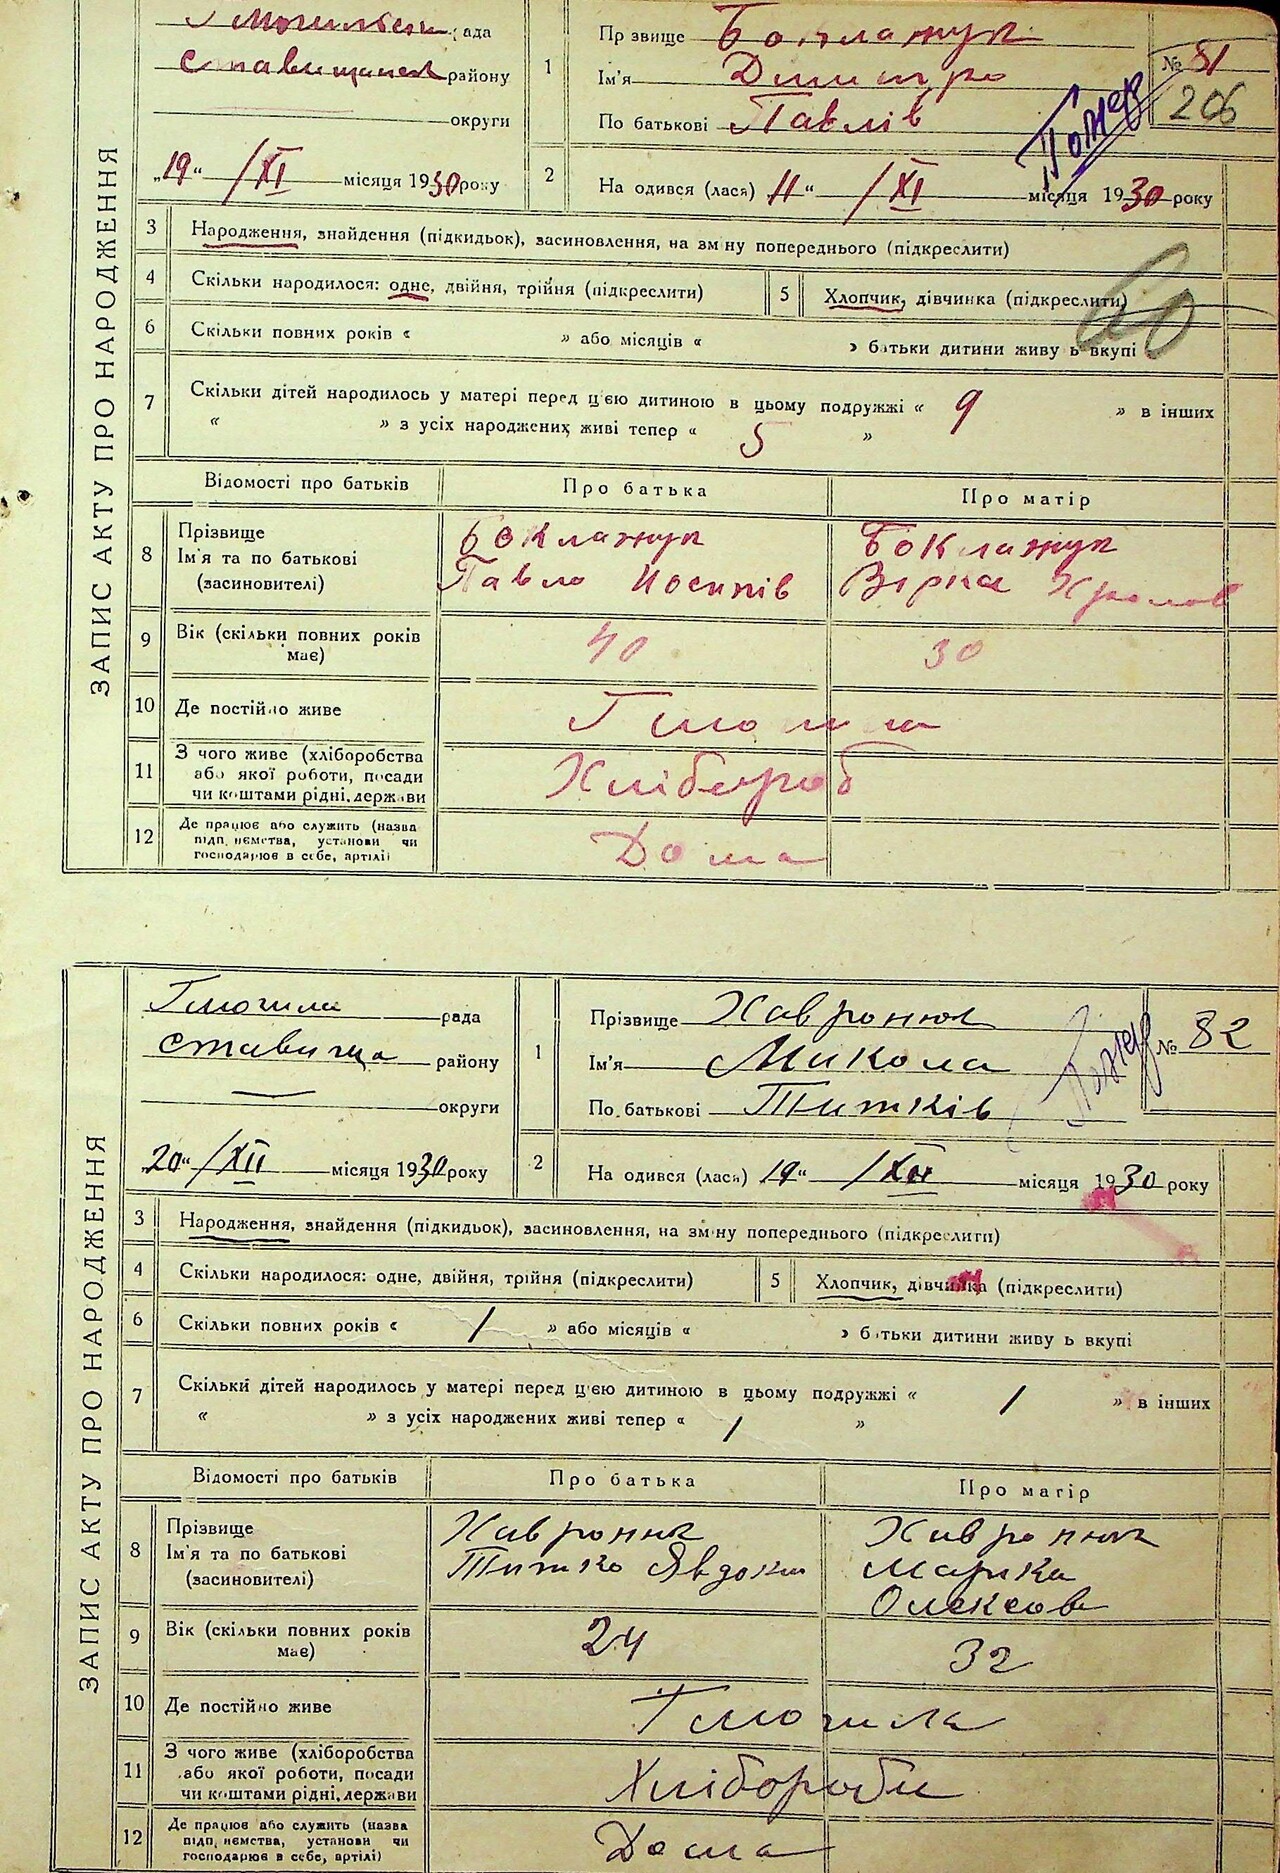 ЗАПИС АКТУ ПРО НАРОДЖЕННЯ
рада
району
округи
„19“ /XI місяця 1930 року
1 Прізвище Боклажук
Ім'я Дмитро
По батькові Павлів
№ 81
206
2 На одився (лася) 11“ /XI місяця 1930 року
3 Народження, знайдення (підкидьок), засиновлення, на зміну попереднього (підкреслити)
4 Скільки народилося: одне, двійня, трійня (підкреслити)
5 Хлопчик, дівчинка (підкреслити)
60
6 Скільки повних років « » або місяців « » батьки дитини живу ь вкупі
7 Скільки дітей народилось у матері перед цією дитиною в цьому подружжі « 9 » в інших
« » з усіх народжених живі тепер « 5 »
Відомості про батьків Про батька Про матір
8 Прізвище Боклажук Боклажук
Ім'я та по батькові Павло Иосипів Вірка
(засиновителі)
9 Вік (скільки повних років 40 30
має)
10 Де постійно живе
11 З чого живе (хліборобства Хлібороб
або якої роботи, посади
чи коштами рідні, держави
12 Де працює або служить (назва Дома
підприємства, установи чи
господарює в себе, артілі)
ЗАПИС АКТУ ПРО НАРОДЖЕННЯ
рада
Ставища району
округи
„20“ /XII місяця 1930 року
1 Прізвище Хавронюк
Ім'я Микола
По батькові Титків
№ 82
2 На одився (лася) 19“ /XII місяця 1930 року
3 Народження, знайдення (підкидьок), засиновлення, на зміну попереднього (підкреслити)
4 Скільки народилося: одне, двійня, трійня (підкреслити)
5 Хлопчик, дівчинка (підкреслити)
6 Скільки повних років « 1 » або місяців « » батьки дитини живу ь вкупі
7 Скільки дітей народилось у матері перед цією дитиною в цьому подружжі « 1 » в інших
« » з усіх народжених живі тепер « 1 »
Відомості про батьків Про батька Про матір
8 Прізвище Хавронюк Хавронюк
Ім'я та по батькові Титко Явдоким Марика
(засиновителі) Олексова
9 Вік (скільки повних років 24 32
має)
10 Де постійно живе
11 З чого живе (хліборобства Хлібороби
або якої роботи, посади
чи коштами рідні, держави
12 Де працює або служить (назва Дома
підприємства, установи чи
господарює в себе, артілі)